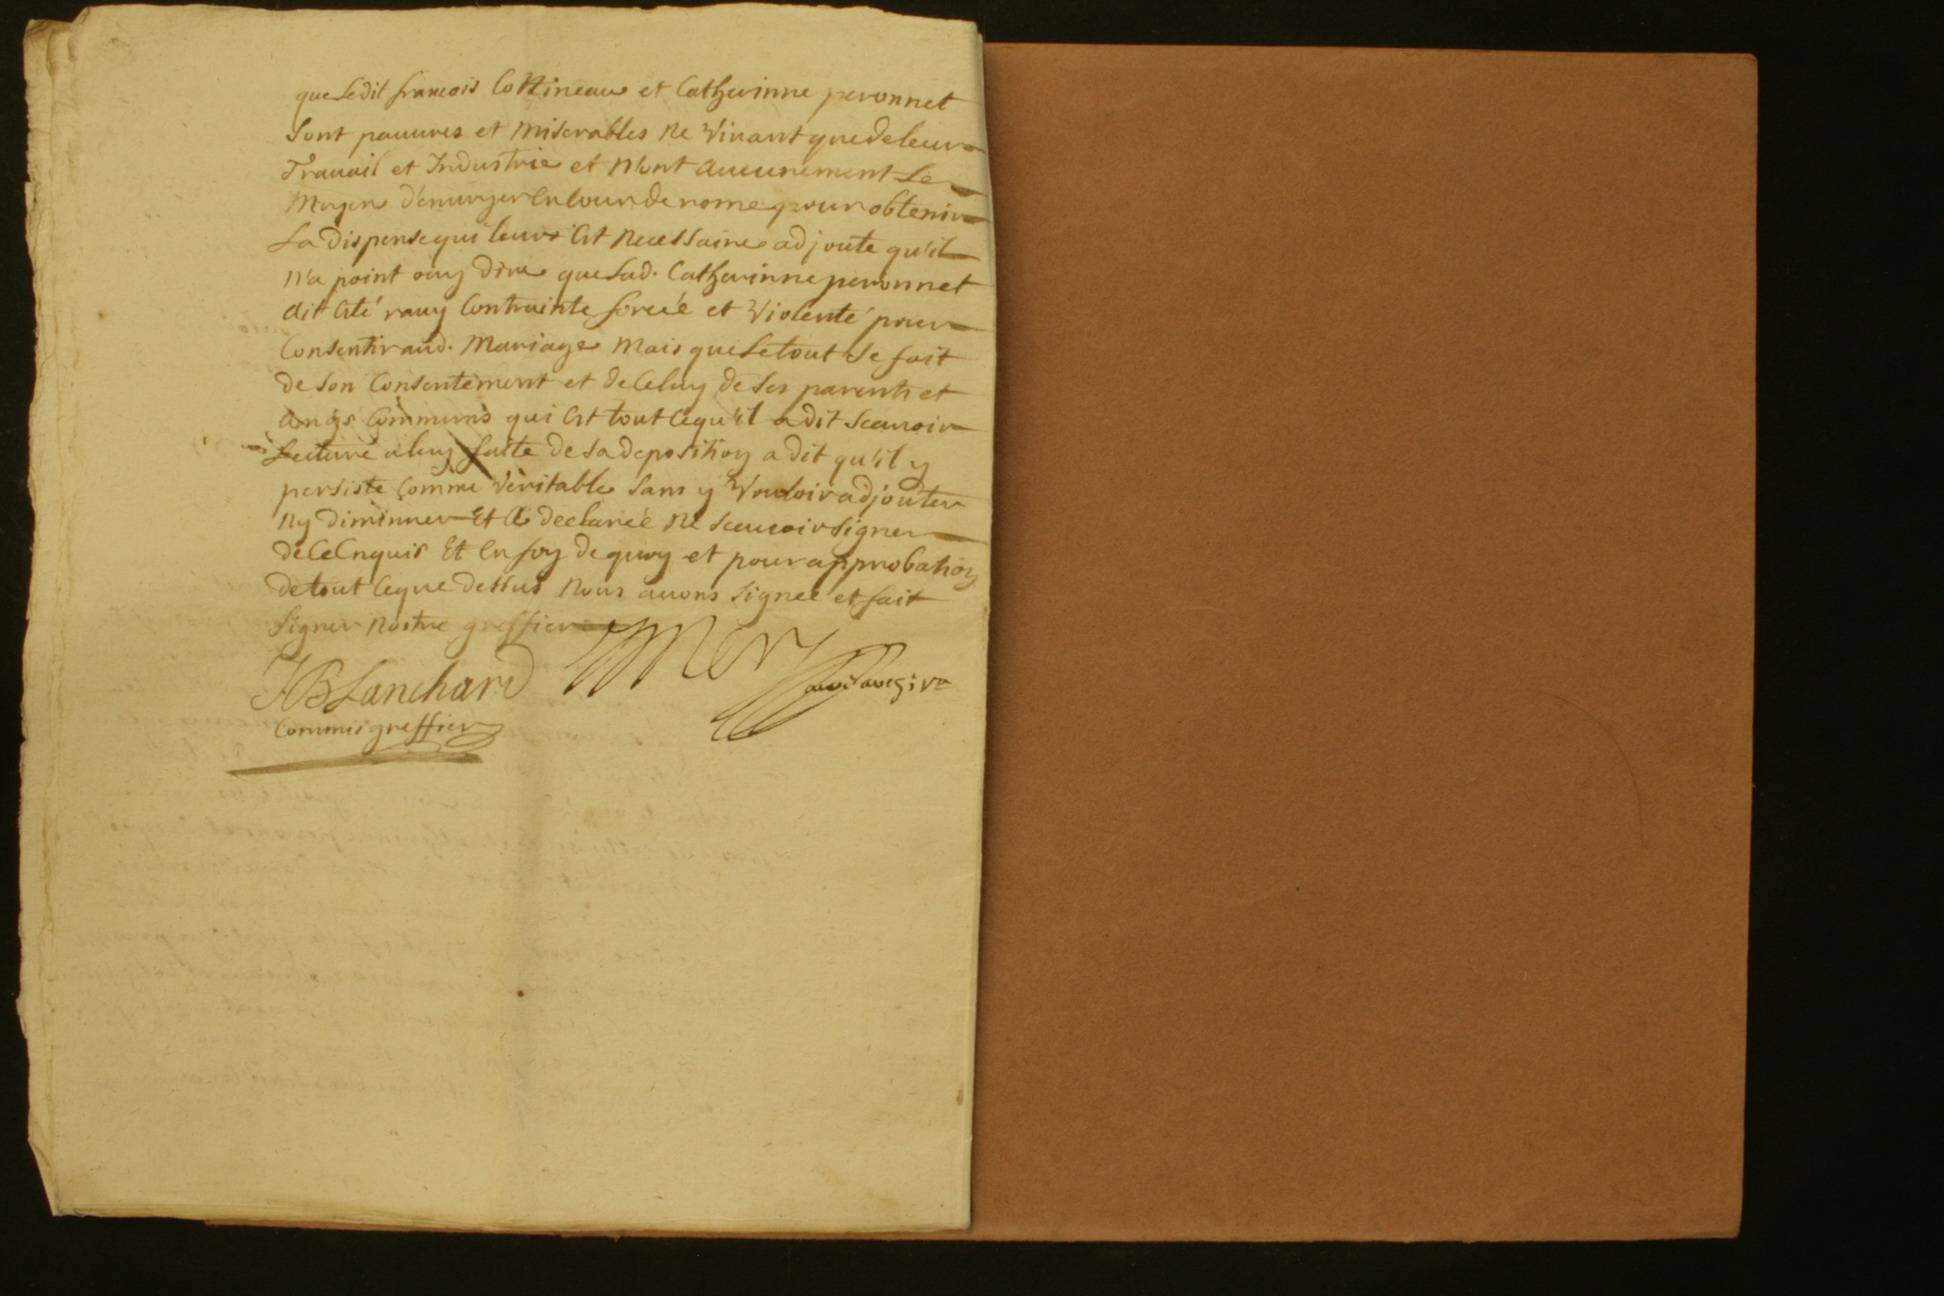 que Ledit francois Cottineau et Catherinne peronnet
Sont pauures et miserables ne Viuant que de leur
Trauail et Industrie et n'ont aucunement Le
moyen d'enuoyer En Cour de rome pour obtenir
La dispense qui leur Est necessaire adjoute qu'il
n'a point ouy dire que Lad. Catherinne peronnet
ait Eté rauy Contrainte forcéé et Violenté pour
Consentir aud. Mariage Mais que Le tout Se fait
de Son Consentement et de Celuy de Ses parents et
amÿs Communs qui Est tout Ce qu'il a dit Scauoir
Lecture a luy faite de Sa deposition a dit qu'il y
persiste Comme Veritable Sans y Vouloir adjouter
ny diminuer Et A declaréé ne Scauoir Signer
de Ce Enquis Et En foy de quoy et pour approbation
de tout Ce que dessus Nous auons Signeé et fait
Signer Nostre greffier
JBLanchard
Commis greffier